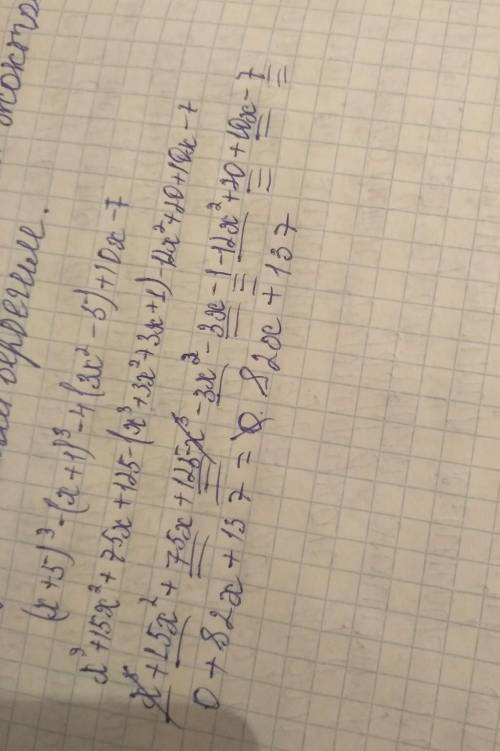 (x+5)³-(x+1)³-4(3x²-5)+10x-7
x³+15x²+75x+125-(x³+3x²+3x+1)-12x²+20+10x-7
x³+15x²+75x+125-x³-3x²-3x-1-12x²+20+10x-7
0+82x+137=0.82x+137